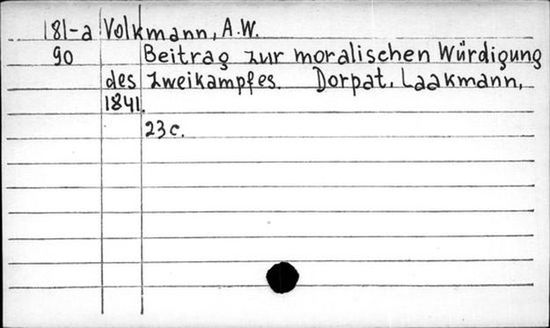 181-a Volkmann, A.W.
90 Beitrag zur moralischen Würdigung
des Zweikampfes. Dorpat, Laakmann,
1841.
23 c.